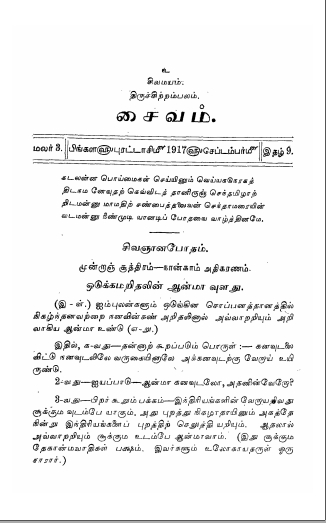 உ
சிவமயம்.
திருச்சிற்றம்பலம்.
சைவம்.
மலர் 3. பிங்கள௵புரட்டாசிமீ 1917௵செப்டம்பர்மீ இதழ் 9.
கடலன்ன பொய்மைகள் செய்யினும் வெய்யகடுநரகத்
திடாம லேயுதற் கெவ்விடத் தானிருஞ் செந்தமிழாற்
திடமன்னு மாமதிற் சண்பைத்தலைவன் செந்தாமரையின்
வடமன்னு நீண்முடி யானடிப் போதவை வாழ்த்தினமே.
சிவஞானபோதம்.
முன்றுஞ் சூத்திரம்—நான்காம் அதிகரணம்.
ஒடுக்கமறிதலின் ஆன்மா வுளது.
(இ - ள்.) ஐம்புலன்களும் ஒடுங்கின சொப்பனத்தானத்தில்
நிகழ்ந்தனவற்றை நனவின்கண் அறிதலினால் அவ்வாறறியும் அறி
வாகிய ஆன்மா உண்டு (எ-று.)
இதில், க-வது—தன்னாற் கூறப்படும் பொருள் :— கனவுடலை
விட்டு நனவுடலிலே வருகையினாலே அக்கனவுடற்கு வேறாய் உயி
ருண்டு.
2-வது—ஐயப்பாடு—ஆன்மா கனவுடலோ, அதனின்வேறோ?
3-வது—பிறர் கூறும் பக்கம்—இந்திரியங்களின் வேறாயதிலது
சூக்கும வுடம்பே யாகும், அது புறத்து நிகழாதாயினும் அகத்தே
நின்று இந்திரியங்களைப் புறத்திற் செலுத்தி யறியும். ஆதலால்
அவ்வாறறியும் சூக்கும உடம்பே ஆன்மாவாம். (இது சூக்கும
தேகான்மவாதிகள் பக்ஷம். இவர்களும் உலோகாயதருள் ஒரு
சாரார்.)